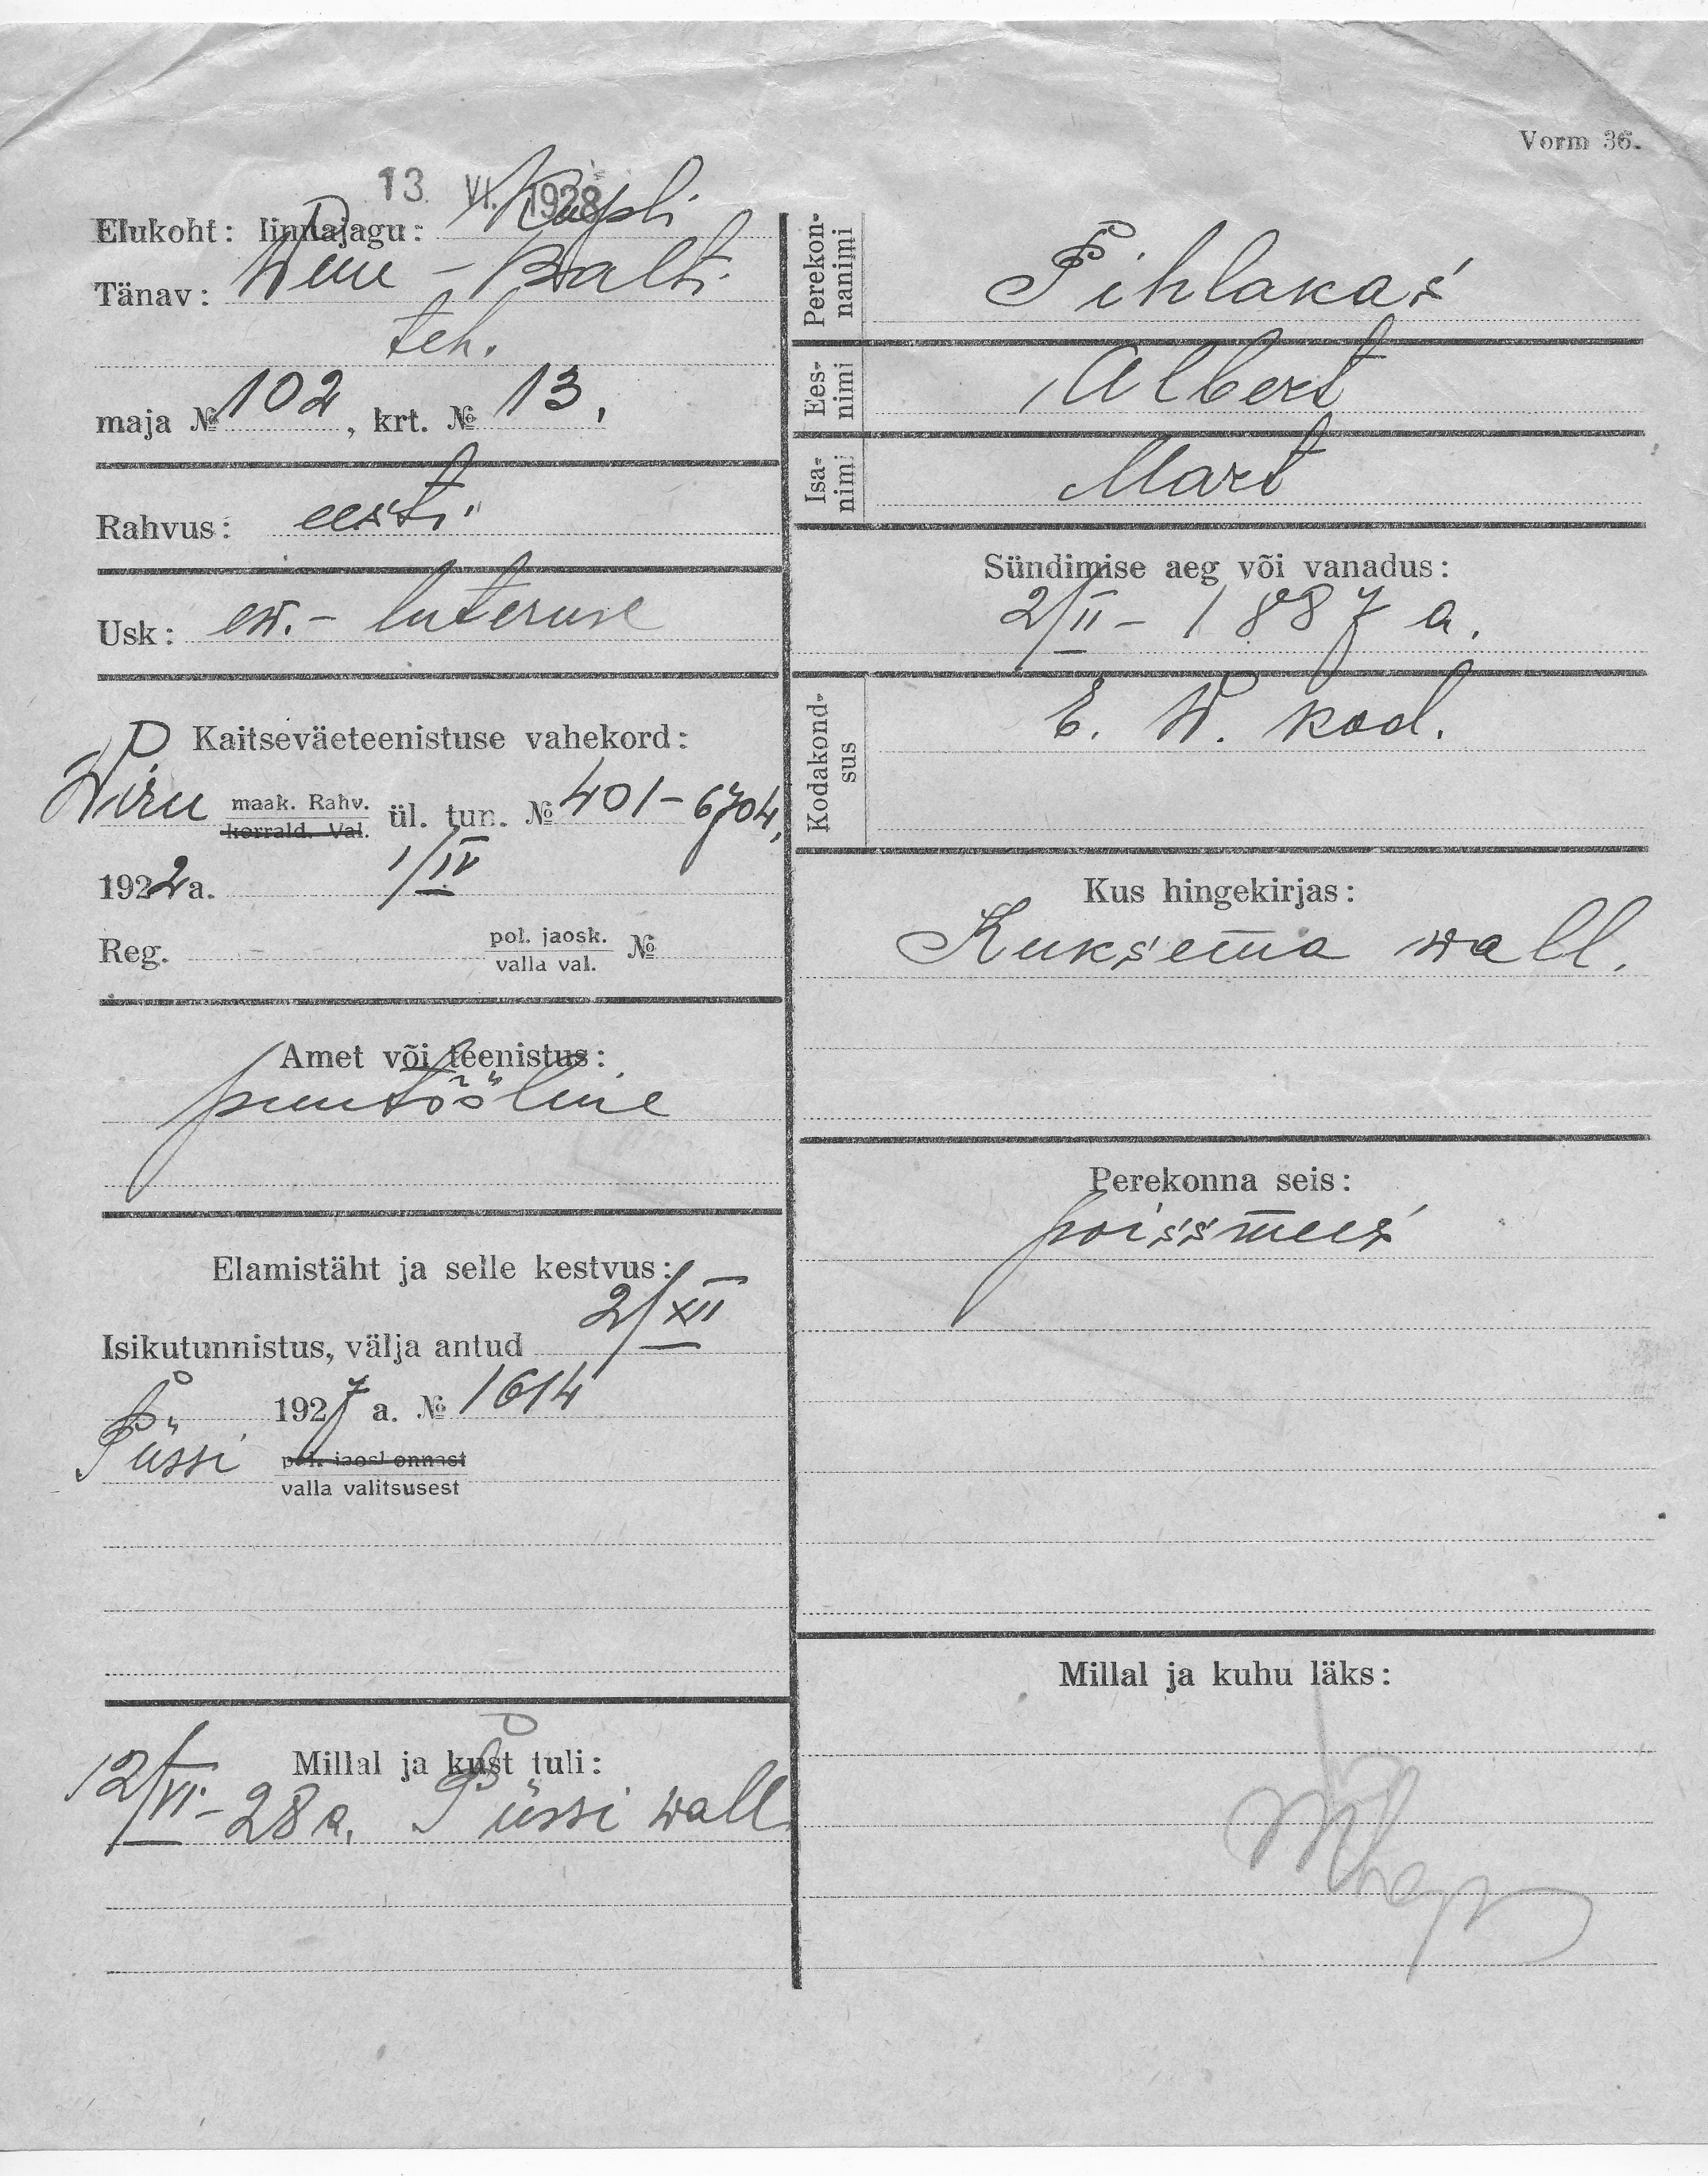 Vorm 36.
13. VI. 1928
Elukoht: linnajagu: Kopli
Tänav: Wene-Balti
teh.
maja № 102, krt. № 13,
Rahvus: eesti
Usk: ew.-luteruse
Kaitseväeteenistuse vahekord:
Wiru maak. Rahv. ül. tun. № 401-6704,
korrald. Val.
1922 a. 1/IV
Reg. pol. jaosk. №
valla val.
Amet või teenistus:
puutööline
Elamistäht ja selle kestvus:
Isikutunnistus, välja antud 2/XII
1927 a. № 1614
Püssi pol. jaoskonnast
valla valitsusest
Millal ja kust tuli:
12/VI-28 a. Püssi wall
Perekonnanimi
Pihlakas
Eesnimi
Albert
Isanimi
Mart
Sündimise aeg või vanadus:
2/II-1887 a.
Kodakondsus
E. W. kod.
Kus hingekirjas:
Kuksema wall.
Perekonna seis:
poissmees
Millal ja kuhu läks: